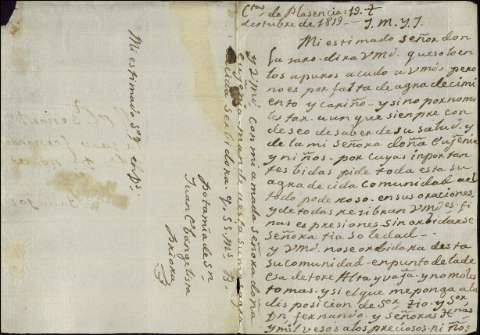 Ctas de Plasencia: 19. 7
de otubre de 1819— J. M. Y J.
Mi estimado señor don
dira Vmd. que solo en
los apuros acudo a Vmds. pero
no es por falta de agradecimi
ento y cariño. y si no por no mo
lestar. aunque sienpre con
deseo de saber de su salud. y
de la mi señora doña Eugenia
y niños. por cuyas inportan
tes bidas pide toda esta su
agradecida comunidad al
todo poderoso. en sus oraciones.
y de todas resiban Vmdes. fi
nas espresiones. Sin orbidarse
señora tia soledad—
y Vmd. no se orbidara desta
su comunidad. en punto de la de
esa de tore Alta y vaja. y no moles
to mas. y si el que me ponga a la
disposicion de Sor. tio. y Sor
Dn. fernando. y señoras
y mil vesos a los preciosos niños
y Vmd. con mi amada señora doña
eugenia. manden a esta su
serbidora. q. Ss. Ms. B.
potamia de Sn
Juan
priora
Mi estimado Sor.